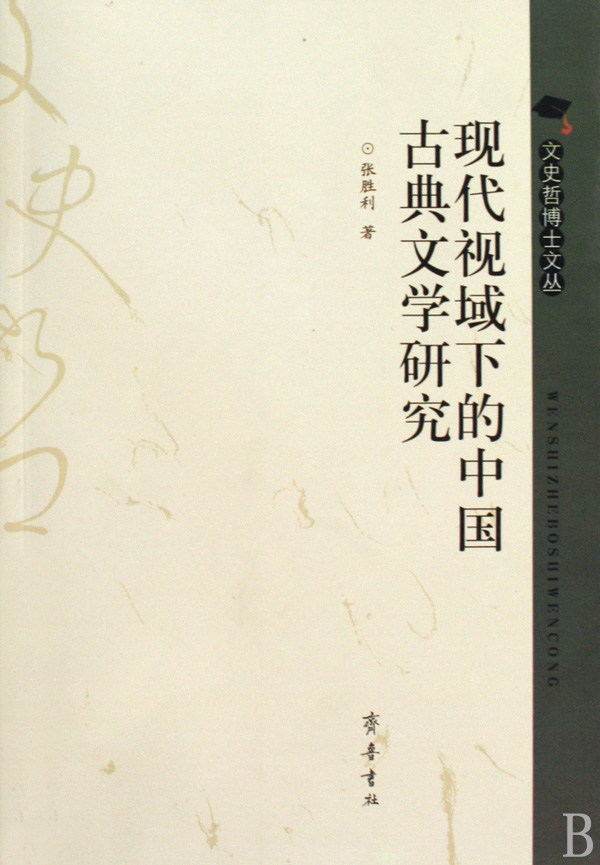 文史哲博士文丛
WENSHIZHEBOSHIWENCONG
现代视域下的中国
古典文学研究
⊙张胜利 著
齊魯書社
文史哲
B